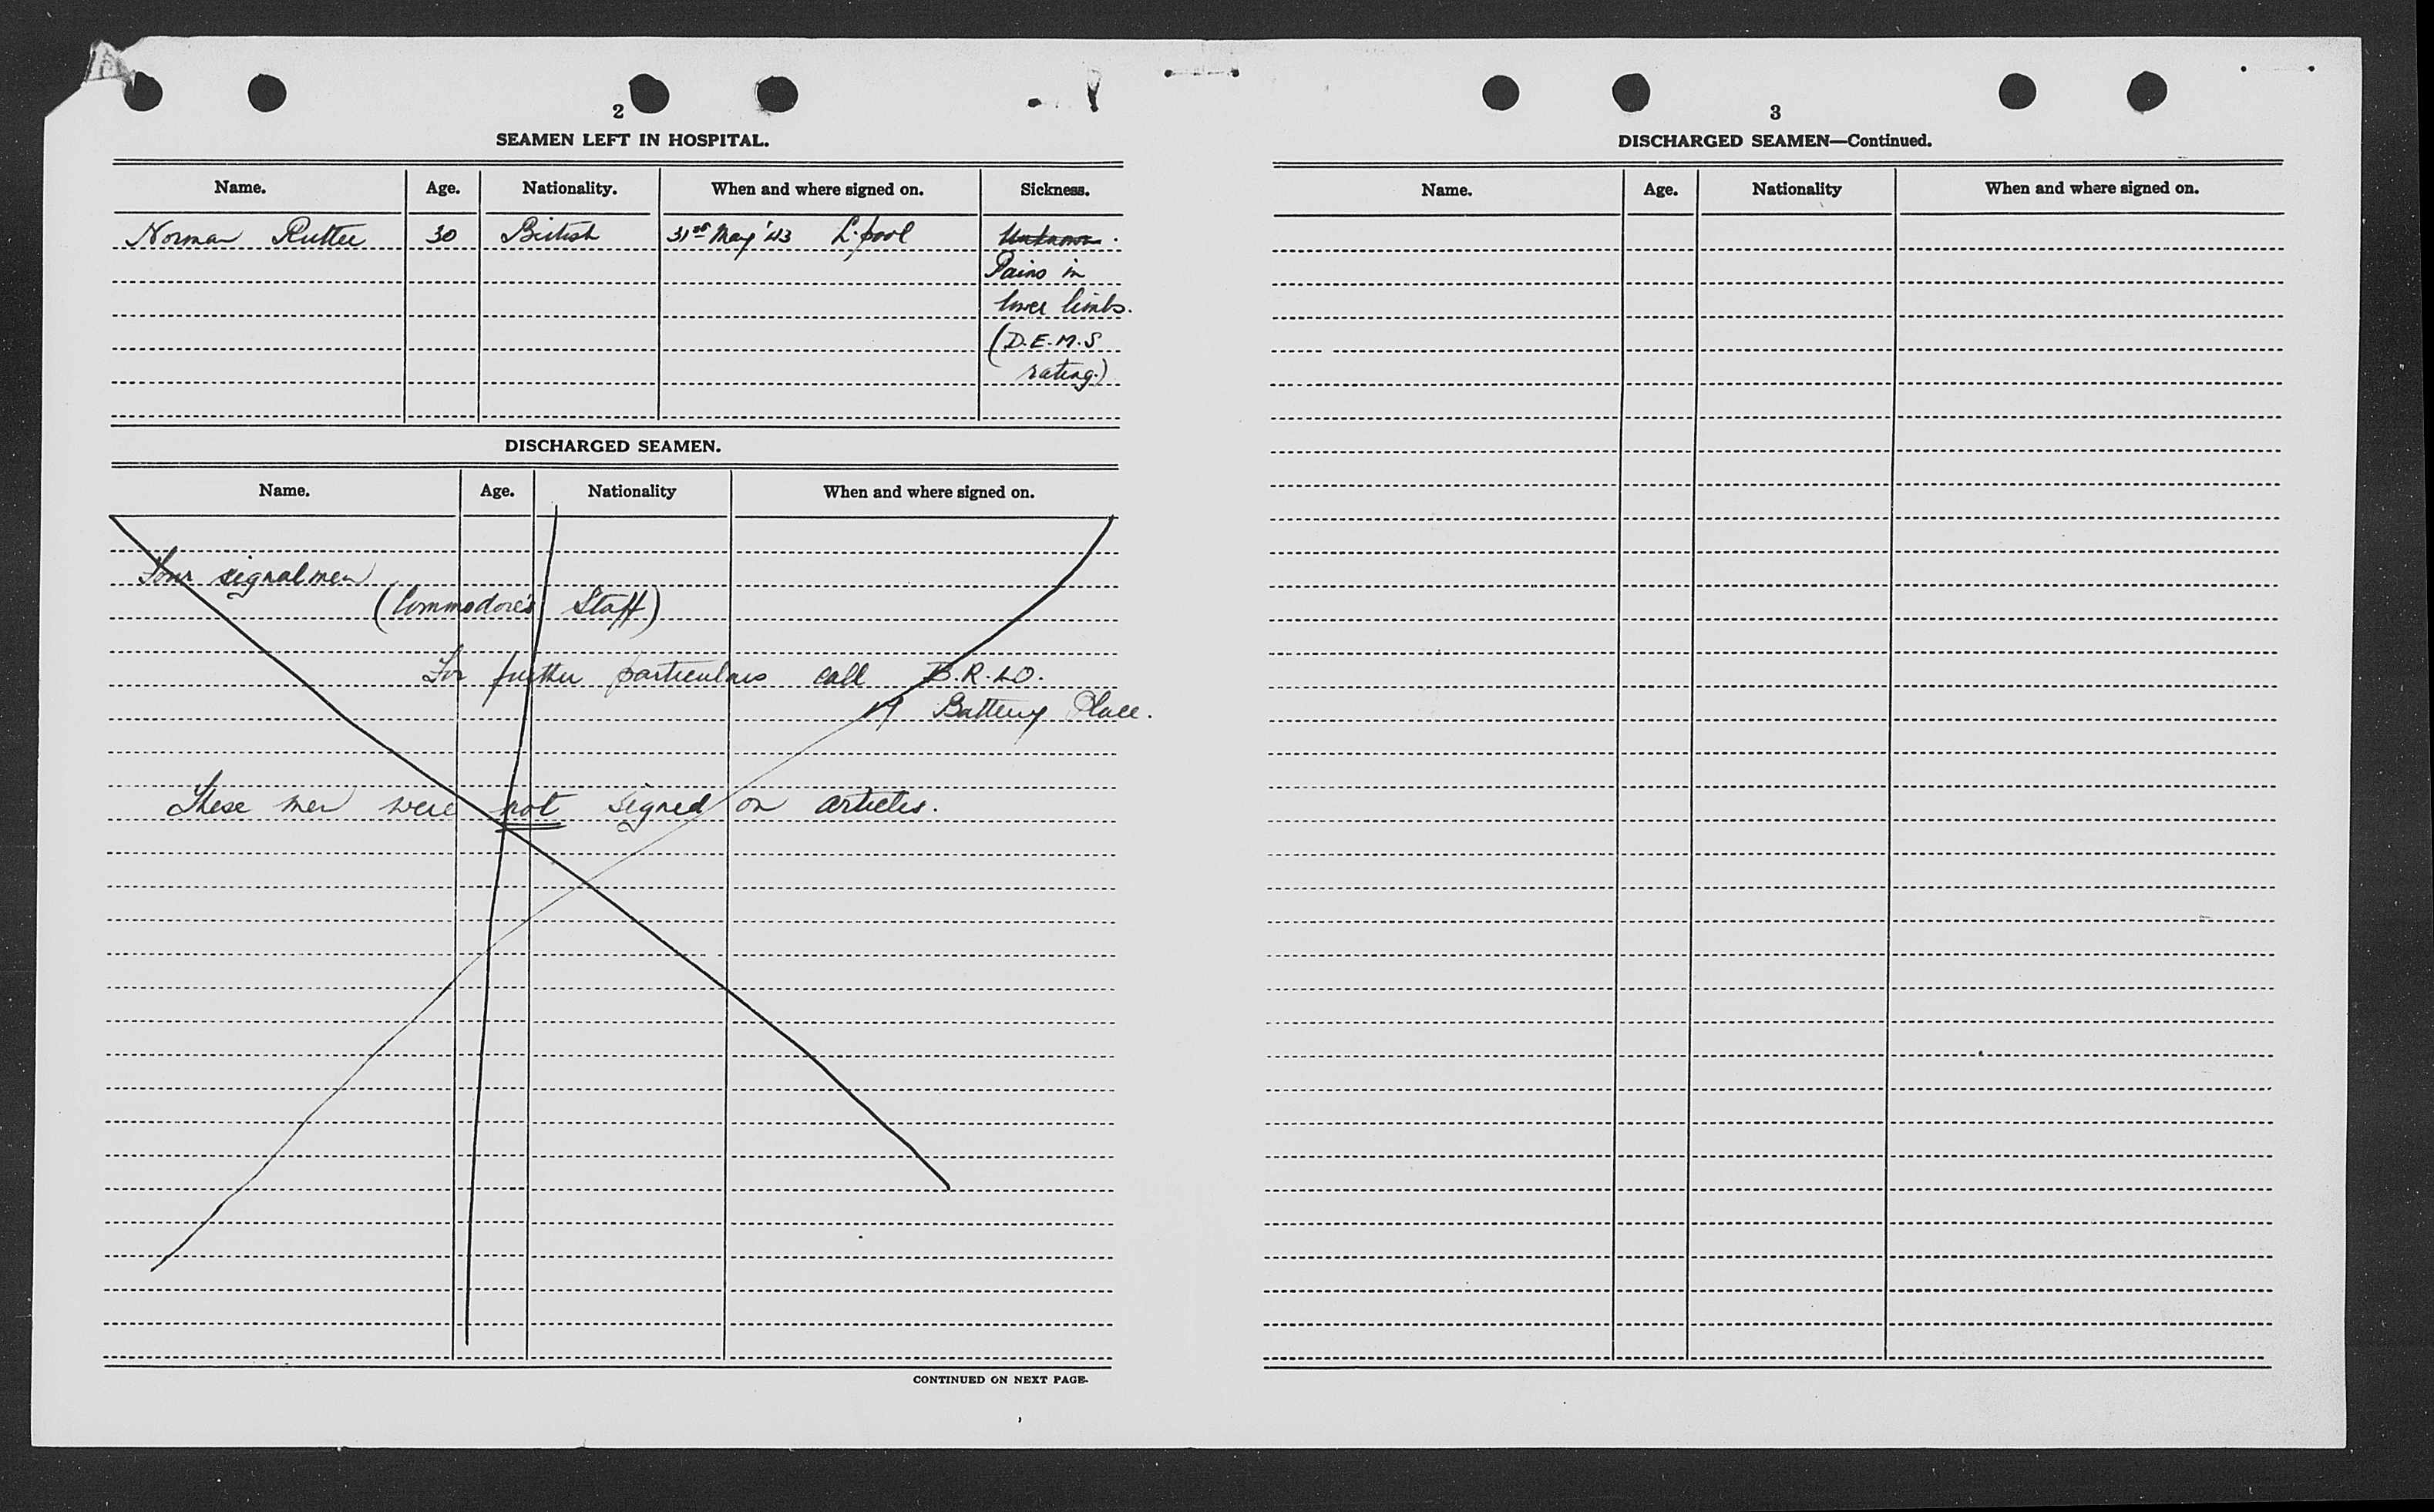 2
SEAMEN LEFT IN HOSPITAL.
Name. Age. Nationality. When and where signed on. Sickness.
Norman Rutter 30 British 31st May '43 L'pool Unknown.
Pains in
lower limbs.
(D.E.M.S
rating.)
DISCHARGED SEAMEN.
Name. Age. Nationality When and where signed on.
Four signalmen
(Commodore's Staff)
For further particulars call B.R.LO.
17 Battery Place.
These men were not signed on articles.
CONTINUED ON NEXT PAGE.
3
DISCHARGED SEAMEN—Continued.
Name. Age. Nationality When and where signed on.